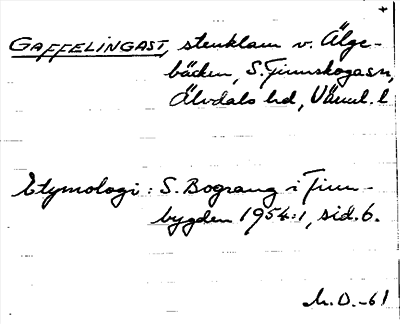 GAFFELINGAST, stenklam v. Älge-
bäcken, S. Finnskogasn,
Älvdals hd, Värml. l
Etymologi: S. Bograng i Finn-
bygden 1954:1, sid. 6.
M.O.-61